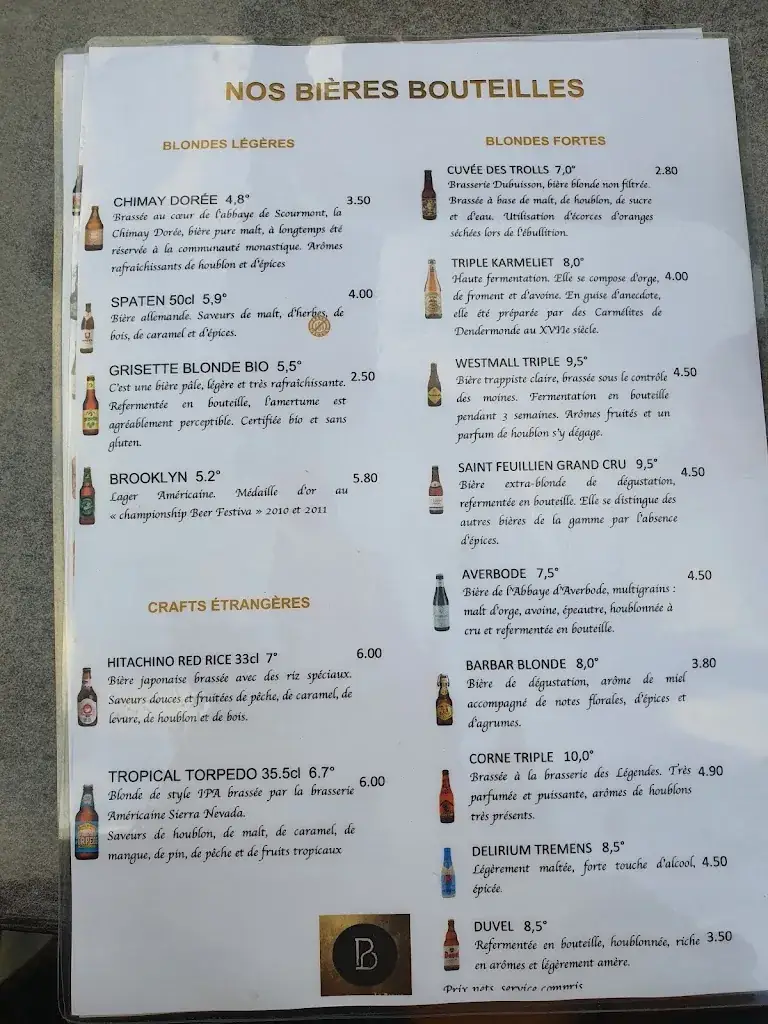 NOS BIÈRES BOUTEILLES
BLONDES LÉGÈRES
CHIMAY DORÉE 4,8° 3.50
Brassée au cœur de l'abbaye de Scourmont, la
Chimay Dorée, bière pure malt, à longtemps été
réservée à la communauté monastique. Arômes
rafraichissants de houblon et d'épices
SPATEN 50cl 5,9° 4.00
Bière allemande. Saveurs de malt, d'herbes, de
bois, de caramel et d'épices.
GRISETTE BLONDE BIO 5,5°
C'est une bière pâle, légère et très rafraichissante. 2.50
Refermentée en bouteille, l'amertume est
agréablement perceptible. Certifiée bio et sans
gluten.
BROOKLYN 5.2° 5.80
Lager Américaine. Médaille d'or au
« championship Beer Festiva » 2010 et 2011
CRAFTS ÉTRANGÈRES
HITACHINO RED RICE 33cl 7° 6.00
Bière japonaise brassée avec des riz spéciaux.
Saveurs douces et fruitées de pêche, de caramel, de
levure, de houblon et de bois.
TROPICAL TORPEDO 35.5cl 6.7° 6.00
Blonde de style IPA brassée par la brasserie
Américaine Sierra Nevada.
Saveurs de houblon, de malt, de caramel, de
mangue, de pin, de pêche et de fruits tropicaux
BLONDES FORTES
CUVÉE DES TROLLS 7,0° 2.80
Brasserie Dubuisson, bière blonde non filtrée.
Brassée à base de malt, de houblon, de sucre
et d'eau. Utilisation d'écorces d'oranges
séchées lors de l'ébullition.
TRIPLE KARMELIET 8,0°
Haute fermentation. Elle se compose d'orge, 4.00
de froment et d'avoine. En guise d'anecdote,
elle été préparée par des Carmélites de
Dendermonde au XVIIe siècle.
WESTMALL TRIPLE 9,5°
Bière trappiste claire, brassée sous le contrôle 4.50
des moines. Fermentation en bouteille
pendant 3 semaines. Arômes fruités et un
parfum de houblon s'y dégage.
SAINT FEUILLIEN GRAND CRU 9,5° 4.50
Bière extra-blonde de dégustation,
refermentée en bouteille. Elle se distingue des
autres bières de la gamme par l'absence
d'épices.
AVERBODE 7,5° 4.50
Bière de l'Abbaye d'Averbode, multigrains :
malt d'orge, avoine, épeautre, houblonnée à
cru et refermentée en bouteille.
BARBAR BLONDE 8,0° 3.80
Bière de dégustation, arôme de miel
accompagné de notes florales, d'épices et
d'agrumes.
CORNE TRIPLE 10,0°
Brassée à la brasserie des Légendes. Très 4.90
parfumée et puissante, arômes de houblons
très présents.
DELIRIUM TREMENS 8,5°
Légèrement maltée, forte touche d'alcool, 4.50
épicée.
DUVEL 8,5°
Refermentée en bouteille, houblonnée, riche 3.50
en arômes et légèrement amère.
Prix nets, service compris